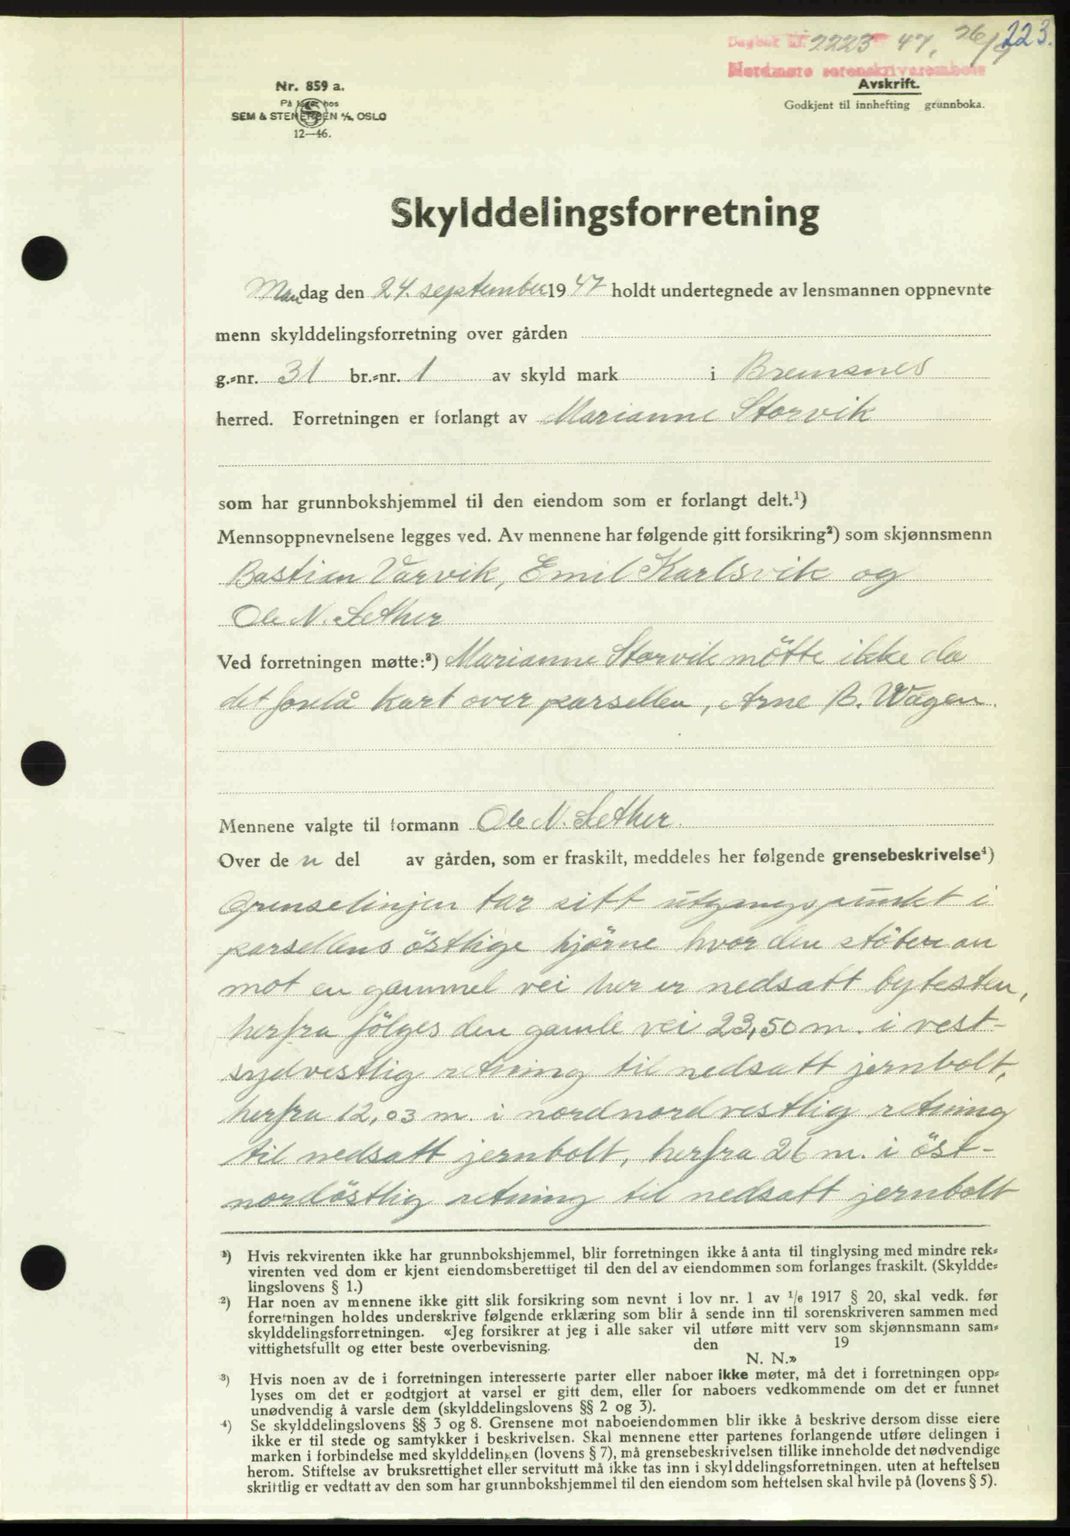 223.
Dagbok nr. 2223 - 47, 26/9
Nordmøre sorenskriverembete
Nr. 859 a.
På lager hos
SEM & STENERSEN A/S, OSLO
12—46.
Avskrift.
Godkjent til innhefting i grunnboka.
Skylddelingsforretning
Mandag den 24. september 1947 holdt undertegnede av lensmannen oppnevnte
menn skylddelingsforretning over gården
g.-nr. 31 br.-nr. 1 av skyld mark i Bremsnes
herred. Forretningen er forlangt av Marianne Storvik
som har grunnbokshjemmel til den eiendom som er forlangt delt.¹)
Mennsoppnevnelsene legges ved. Av mennene har følgende gitt forsikring²) som skjønnsmenn
Bastian Varvik, Emil Karlsvik og
Ole N. Sether
Ved forretningen møtte:³) Marianne Storvik mötte ikke da
det forelå kart over parsellen, Arne B. Wågen.
Mennene valgte til formann Ole N. Sether.
Over de n del av gården, som er fraskilt, meddeles her følgende grensebeskrivelse⁴)
Grenselinjen tar sitt utgangspunkt i
parsellens östlige hjörne hvor den stöter an
mot en gammel vei her er nedsatt bytesten,
herfra fölges den gamle vei 23,50 m. i vest-
sydvestlig retning til nedsatt jernbolt,
herfra 12,03 m. i nordnordvestlig retning
til nedsatt jernbolt, herfra 26 m. i öst-
nordöstlig retning til nedsatt jernbolt
¹) Hvis rekvirenten ikke har grunnbokshjemmel, blir forretningen ikke å anta til tinglysing med mindre rek-
virenten ved dom er kjent eiendomsberettiget til den del av eiendommen som forlanges fraskilt. (Skyldde-
lingslovens § 1.)
²) Har noen av mennene ikke gitt slik forsikring som nevnt i lov nr. 1 av 1/6 1917 § 20, skal vedk. før
forretningen holdes underskrive følgende erklæring som blir å sende inn til sorenskriveren sammen med
skylddelingsforretningen. «Jeg forsikrer at jeg i alle saker vil utføre mitt verv som skjønnsmann sam-
vittighetsfullt og etter beste overbevisning. den 19
N. N.»
³) Hvis noen av de i forretningen interesserte parter eller naboer ikke møter, må det i forretningen opp-
lyses om det er godtgjort at varsel er gitt dem, eller for naboers vedkommende om det er funnet
unødvendig å varsle dem (skylddelingslovens §§ 2 og 3).
⁴) Se skylddelingslovens §§ 3 og 8. Grensene mot naboeiendommen blir ikke å beskrive dersom disse eiere
ikke er til stede og samtykker i beskrivelsen. Skal mennene etter partenes forlangende utføre delingen i
marken i forbindelse med skylddelingen (lovens § 7), må grensebeskrivelsen tillike inneholde det nødvendige
herom. Stiftelse av bruksrettighet eller servitutt må ikke tas inn i skylddelingsforretningen, uten at heftelsen
skriftlig er vedtatt av den som har grunnbokshjemmel til den eiendom som heftelsen skal hvile på (lovens § 5).